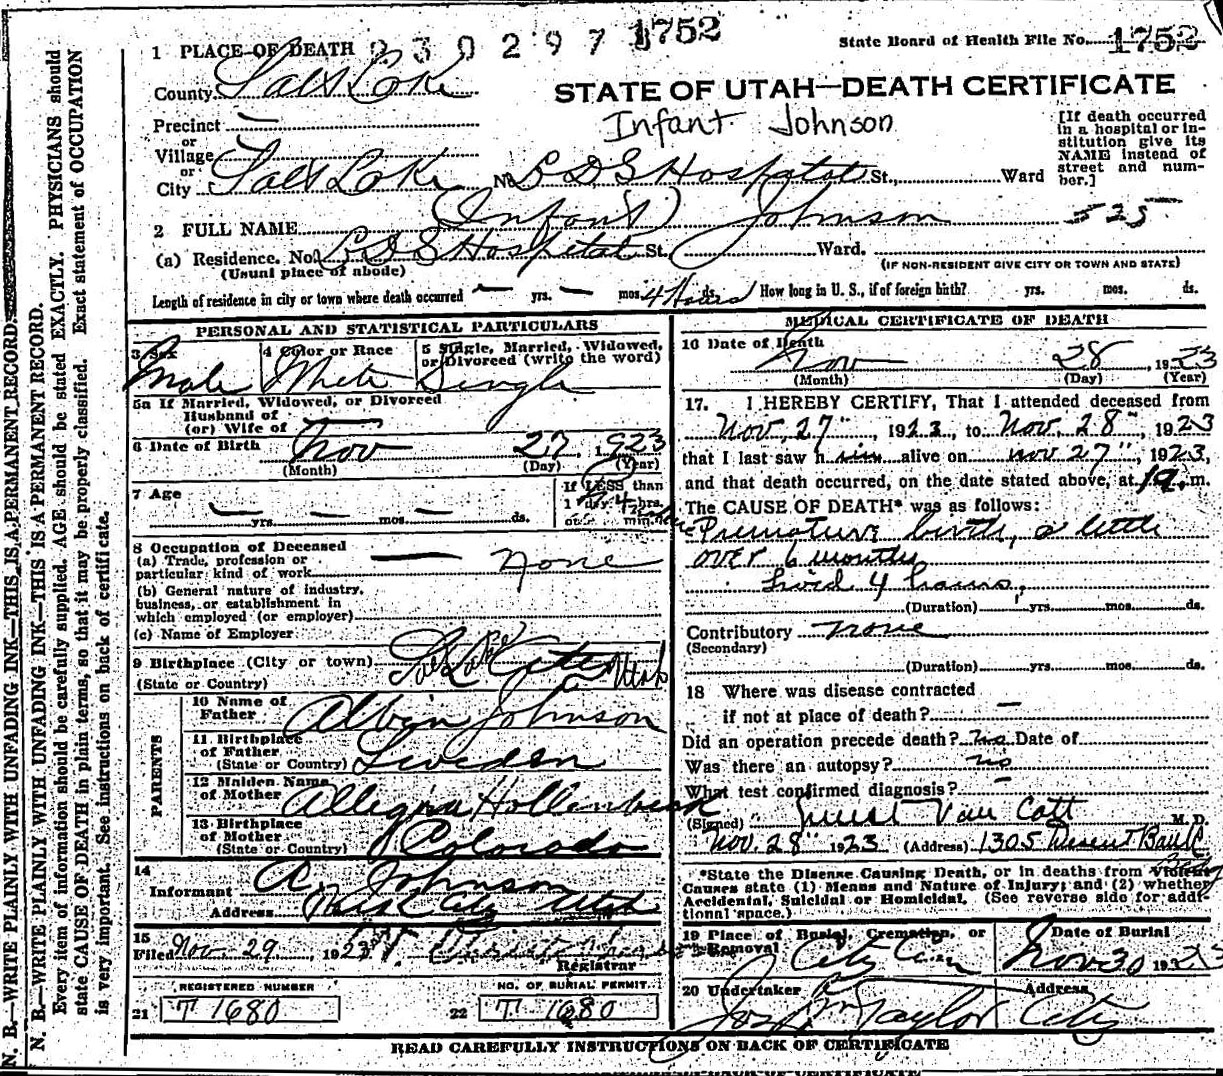 N. B.—WRITE PLAINLY WITH UNFADING INK—THIS IS A PERMANENT RECORD.
N. B.—WRITE PLAINLY WITH UNFADING INK—THIS IS A PERMANENT RECORD.
Every item of information should be carefully supplied. AGE should be stated EXACTLY. PHYSICIANS should
state CAUSE OF DEATH in plain terms, so that it may be properly classified. Exact statement of OCCUPATION
is very important. See instructions on back of certificate.
1 PLACE OF DEATH 230297 1752
State Board of Health File No. 1752
County Salt Lake
STATE OF UTAH—DEATH CERTIFICATE
Precinct —
Infant Johnson
or
Village
or
City Salt Lake No. L D S Hospital St., Ward
[If death occurred
in a hospital or in-
stitution give its
NAME instead of
street and num-
ber.]
2 FULL NAME (Infant) Johnson 525
(a) Residence. No. L D S Hospital St. Ward.
(Usual place of abode) (IF NON-RESIDENT GIVE CITY OR TOWN AND STATE)
Length of residence in city or town where death occurred — yrs. — mos. 4 Hours ds. How long in U. S., if of foreign birth? yrs. mos. ds.
PERSONAL AND STATISTICAL PARTICULARS
3 Sex
Male
4 Color or Race
White
5 Single, Married, Widowed,
or Divorced (write the word)
Single
5a If Married, Widowed, or Divorced
Husband of
(or) Wife of —
6 Date of Birth Nov 27, 1923
(Month) (Day) (Year)
7 Age — yrs. — mos. — ds.
If LESS than
1 day 4 hrs.
or min.
8 Occupation of Deceased
(a) Trade, profession or
particular kind of work — None
(b) General nature of industry,
business, or establishment in
which employed (or employer)
(c) Name of Employer
9 Birthplace (City or town) Salt Lake City Utah
(State or Country)
PARENTS
10 Name of
Father Albin Johnson
11 Birthplace
of Father
(State or Country) Sweden
12 Maiden Name
of Mother Allegra Hollenbeck
13 Birthplace
of Mother
(State or Country) Colorado
14
Informant A. Johnson
Address Park City Utah
15
Filed Nov. 29, 1923
Registrar
REGISTERED NUMBER
21 T 1680
NO. OF BURIAL PERMIT.
22 T 1680
MEDICAL CERTIFICATE OF DEATH
16 Date of Death
Nov 28, 1923
(Month) (Day) (Year)
17. I HEREBY CERTIFY, That I attended deceased from
Nov. 27", 1923, to Nov. 28", 1923
that I last saw him alive on Nov 27", 1923,
and that death occurred, on the date stated above, at 1 a. m.
The CAUSE OF DEATH* was as follows:
Premature birth, a little
over 6 months
Lived 4 hours,
(Duration) yrs. mos. ds.
Contributory none
(Secondary)
(Duration) yrs. mos. ds.
18 Where was disease contracted
if not at place of death? —
Did an operation precede death? no Date of
Was there an autopsy? no
What test confirmed diagnosis? —
(Signed) Van Cott M. D.
Nov. 28 1923 (Address) 1305 Deseret Bank Bldg
*State the Disease Causing Death, or in deaths from Violent
Causes state (1) Means and Nature of Injury; and (2) whether
Accidental, Suicidal or Homicidal. (See reverse side for addi-
tional space.)
19 Place of Burial, Cremation, or
Removal City Cem
Date of Burial
Nov 30 1923
20 Undertaker
Jos. Wm Taylor
Address
City
READ CAREFULLY INSTRUCTIONS ON BACK OF CERTIFICATE